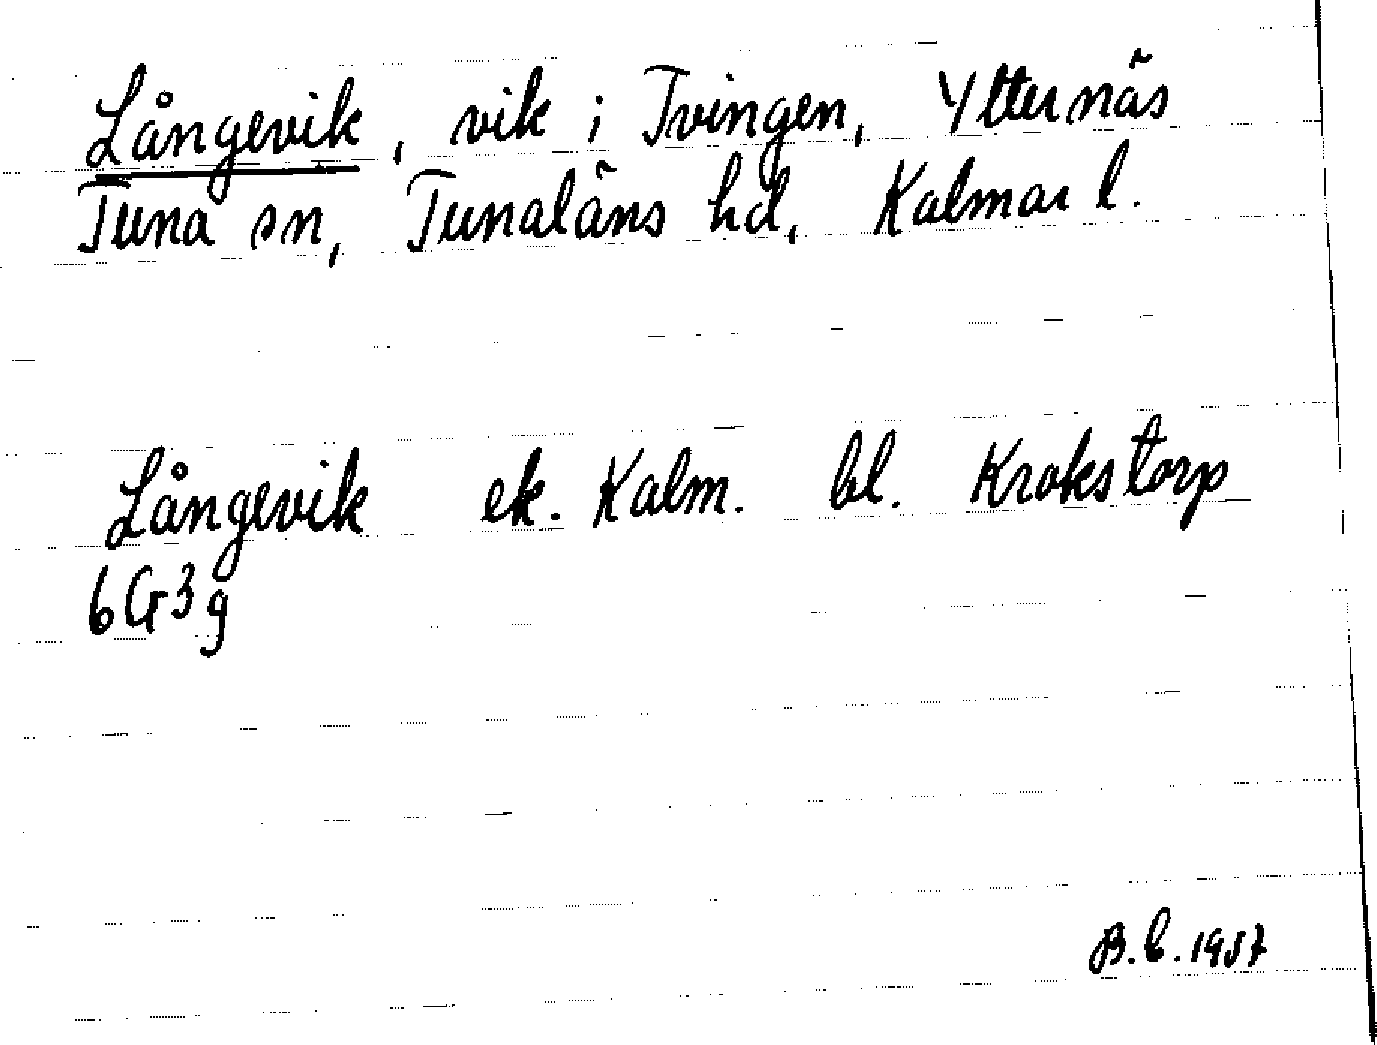 Långevik, vik i Tvingen, Ytternäs
Tuna sn, Tunaläns hd, Kalmar l.
Långevik ek. Kalm. bl. Krokstorp
6G3g
B.b. 1957